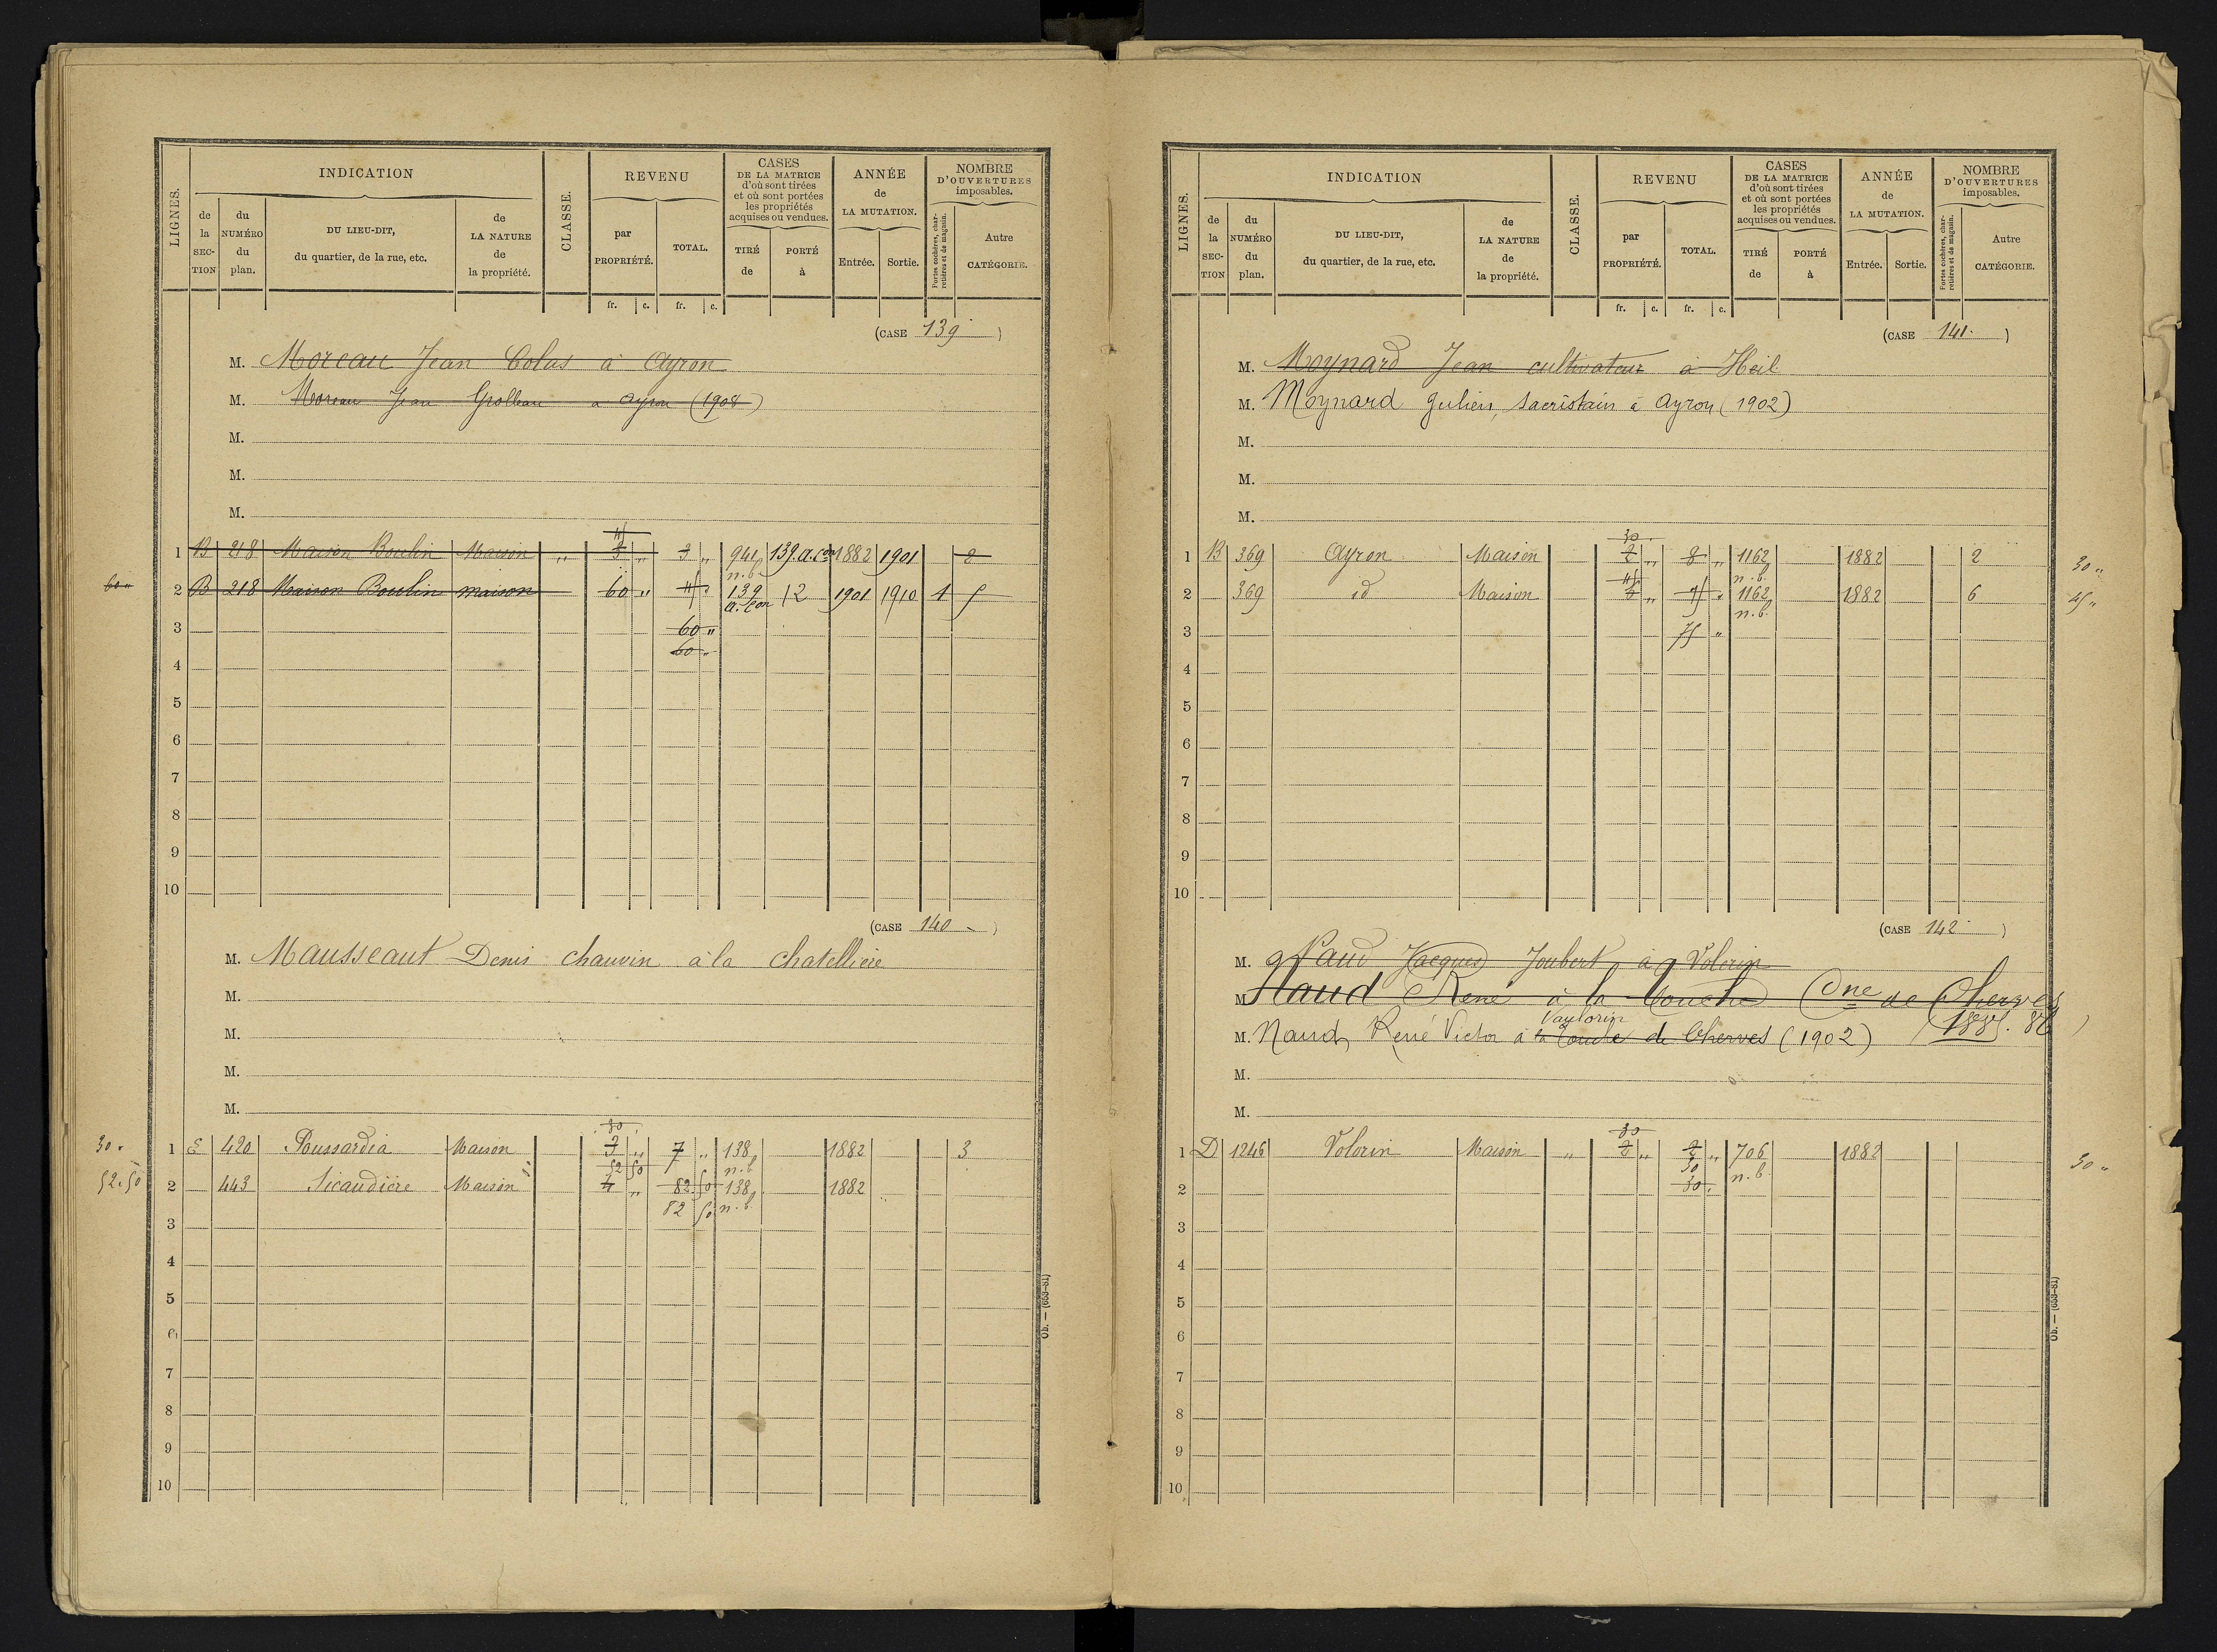 INDICATION
CLASSE.
REVENU
CASES
DE LA MATRICE
d'où sont tirées
et où sont portées
les propriétés
acquises ou vendues.
ANNÉE
de
LA MUTATION.
NOMBRE
D'OUVERTURES
imposables.
LIGNES.
de la SECTION
du NUMÉRO du plan.
DU LIEU-DIT,
du quartier, de la rue, etc.
de LA NATURE de la propriété.
par PROPRIÉTÉ.
TOTAL.
TIRÉ de
PORTÉ à
Entrée.
Sortie.
Portes cochères, charretières et de magasin.
Autre CATÉGORIE.
fr. c. fr. c.
(CASE 139)
M. Moreau Jean Colas à Ayron
M. Moreau Jean Grolleau a ayron (1908)
M.
M.
M.
1 B 218 Maison Boulin Maison „ 3 „ 3 „ 941 n.b. 139. a. con 1882 1901 2
60 „ 2 B 218 Maison Boulin maison 60 „ 139 a. con 12 1901 1910 1 5
3 60 „
60 „
4
5
6
7
8
9
10
(CASE 140)
M. Mausseaut Denis chauvin à la chatellière
M.
M.
M.
M.
30
30 „ 1 E 420 Poussardia Maison 3 „ 7 „ 138 n.b. 1882 3
52 50
52.50 2 443 Sicaudière Maison 4 „ 82 50 138 n.b. 1882
82 50
3
4
5
6
7
8
9
10
Ob. — (653-81)
INDICATION
CLASSE.
REVENU
CASES
DE LA MATRICE
d'où sont tirées
et où sont portées
les propriétés
acquises ou vendues.
ANNÉE
de
LA MUTATION.
NOMBRE
D'OUVERTURES
imposables.
LIGNES.
de la SECTION
du NUMÉRO du plan.
DU LIEU-DIT,
du quartier, de la rue, etc.
de LA NATURE de la propriété.
par PROPRIÉTÉ.
TOTAL.
TIRÉ de
PORTÉ à
Entrée.
Sortie.
Portes cochères, charretières et de magasin.
Autre CATÉGORIE.
fr. c. fr. c.
(CASE 141)
M. Moynard Jean cultivateur à Heil
M. Moynard Julien, Sacristain à Ayron (1902)
M.
M.
M.
30
1 B 369 Ayron Maison 2 „ 8 „ 1162 n.b. 1882 2 30 „
45
2 369 id Maison „ 1162 n.b. 1882 6 45 „
3 75 „
4
5
6
7
8
9
10
(CASE 142)
M. Naud Jacques Joubert à Volorin
M. Naud René à la Touche Cne de Cherves
1885. 86)
Vaulorin
M. Naud René Victor à la Touche de Cherves (1902)
M.
M.
30
1 D 1246 Volorin Maison „ 2 „ 2 „ 706 n.b. 1882 30 „
30
2 30 „
3
4
5
6
7
8
9
10
Ob. — (653-81)